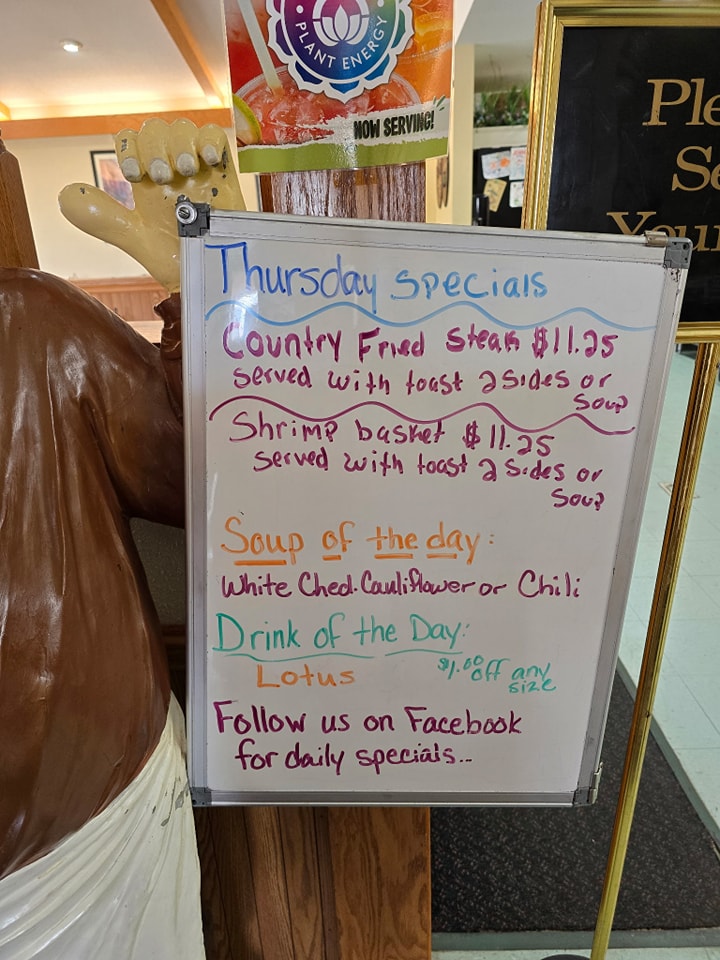 PLANT ENERGY
NOW SERVING!
Ple
Se
Your
Thursday specials
Country Fried Steak $11.25
served with toast 2 sides or
soup
Shrimp basket $11.25
served with toast 2 sides or
soup
Soup of the day:
White Ched. Cauliflower or Chili
Drink of the Day:
Lotus
$1.00 off any
size
Follow us on Facebook
for daily specials...